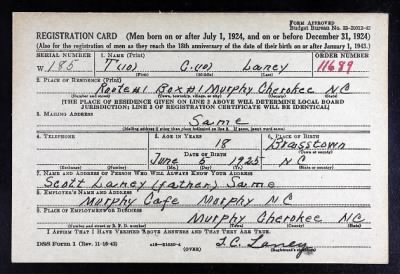 FORM APPROVED
REGISTRATION CARD (Men born on or after July 1, 1924, and on or before December 31, 1924)
(Also for the registration of men as they reach the 18th anniversary of the date of their birth on or after January 1, 1943.)
SERIAL NUMBER 1. NAME (Print) ORDER NUMBER
W 185 T(io) C.(io) Laney 11689
(First) (Middle) (Last)
2. PLACE OF RESIDENCE (Print)
Route #1 Box #1 Murphy Cherokee N.C.
(Number and street) (Town, township, village, or city) (County) (State)
[THE PLACE OF RESIDENCE GIVEN ON LINE 2 ABOVE WILL DETERMINE LOCAL BOARD
JURISDICTION; LINE 2 OF REGISTRATION CERTIFICATE WILL BE IDENTICAL]
3. MAILING ADDRESS
Same
[Mailing address if other than place indicated on line 2. If same, insert word same]
4. TELEPHONE 5. AGE IN YEARS 6. PLACE OF BIRTH
18 Brasstown
DATE OF BIRTH
June 5 1925 N C
(Exchange) (Number) (Mo.) (Day) (Yr.) (State or country)
7. NAME AND ADDRESS OF PERSON WHO WILL ALWAYS KNOW YOUR ADDRESS
Scott Laney (father) Same
8. EMPLOYER'S NAME AND ADDRESS
Murphy Cafe Murphy NC
9. PLACE OF EMPLOYMENT OR BUSINESS
Murphy Cherokee NC
(Number and street or R. F. D. number) (Town) (County) (State)
I AFFIRM THAT I HAVE VERIFIED ABOVE ANSWERS AND THAT THEY ARE TRUE.
DSS Form 1 (Rev. 11-16-42) (OVER) T.C. Laney
(Registrant's signature)